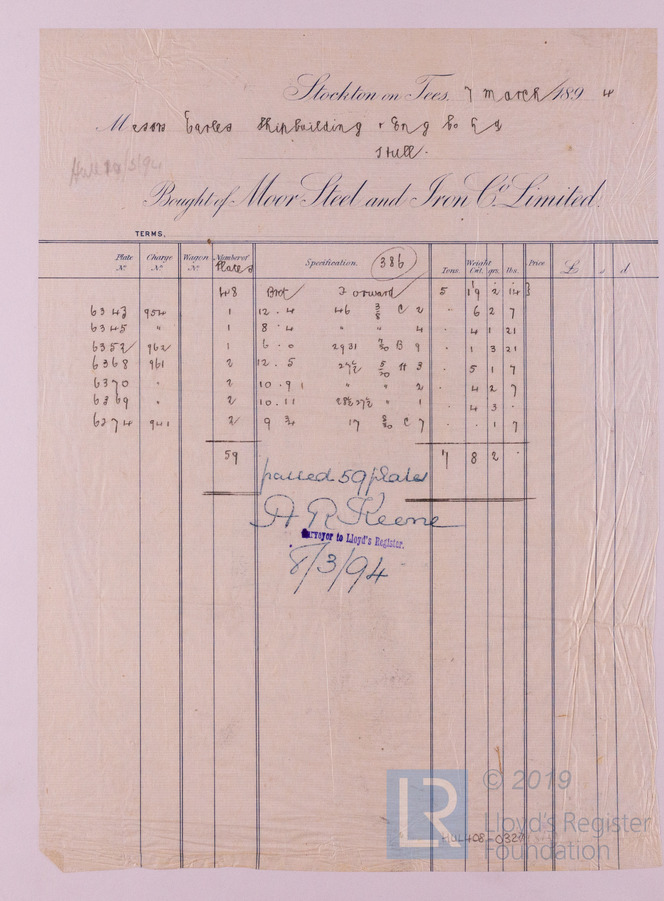 Stockton on Tees. 7 March 1894
Messrs Earles Shipbuilding & Eng Co Ld
Hull.
Bought of Moor Steel and Iron Co. Limited.
TERMS.
Plate No. Charge No. Wagon No. Number of Plates Specification. 386 Tons. Weight Cwt. qrs. lbs. Price £ s d
48 Brot Forward 5 19 2 14
6343 954 1 12 . 4 46 3/8 C 2 " 6 2 7
6345 " 1 8 . 4 " " 4 " 4 1 21
6352 962 1 6 . 0 2931 7/20 B 9 " 1 3 21
6368 961 2 12 . 5 27½ 5/20 H 3 " 5 1 7
6370 " 2 10 . 9 " " 2 . 4 2 7
6369 " 2 10 . 11 " 1 . 4 3 .
6274 941 2 9 ¾ 17 C 7 . . 1 7
59 7 8 2 .
passed 59 plates
A R Keene
Surveyor to Lloyd's Register.
8/3/94
LR
© 2019
Lloyd's Register
Foundation
HUL408-0327